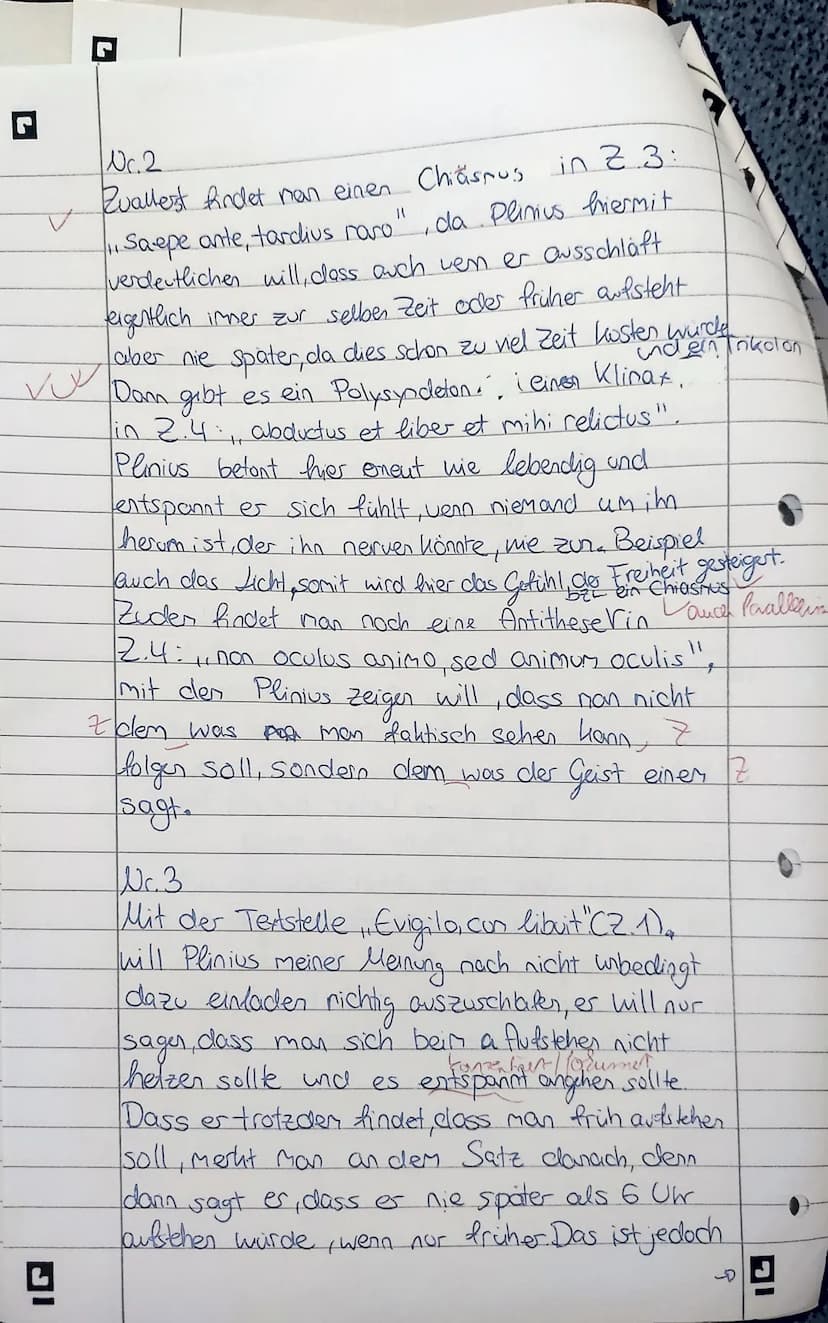 Nr. 2
Zuallerst findet man einen Chiasmus in Z. 3:
„Saepe ante, tardius raro", da Plinius hiermit
verdeutlichen will, dass auch wenn er ausschläft
eigentlich immer zur selben Zeit oder früher aufsteht
aber nie später, da dies schon zu viel Zeit kosten würde
und ein Trikolon
Dann gibt es ein Polysyndeton, einen Klimax,
in Z. 4: „abductus et liber et mihi relictus".
Plinius betont hier erneut wie lebendig und
entspannt er sich fühlt, wenn niemand um ihn
herum ist, der ihn nerven könnte, wie zum Beispiel
auch das Licht, somit wird hier das Gefühl der Freiheit gesteigert.
bzw ein Chiasmus
Zudem findet man noch eine Antithese in
auch
Z. 4: „non oculus animo, sed animum oculis",
mit dem Plinius zeigen will, dass man nicht
Z dem was man faktisch sehen kann, Z
folgen soll, sondern dem was der Geist einem Z
sagt.
Nr. 3
Mit der Textstelle „Evigilo, cum libuit" (Z. 1),
will Plinius meiner Meinung nach nicht unbedingt
dazu einladen richtig auszuschlafen, er will nur
sagen, dass man sich beim aufstehen nicht
hetzen sollte und es entspannt angehen sollte.
Dass er trotzdem findet, dass man früh aufstehen
soll, merkt man an dem Satz danach, denn
dann sagt er, dass er nie später als 6 Uhr
aufstehen würde, wenn nur früher. Das ist jedoch